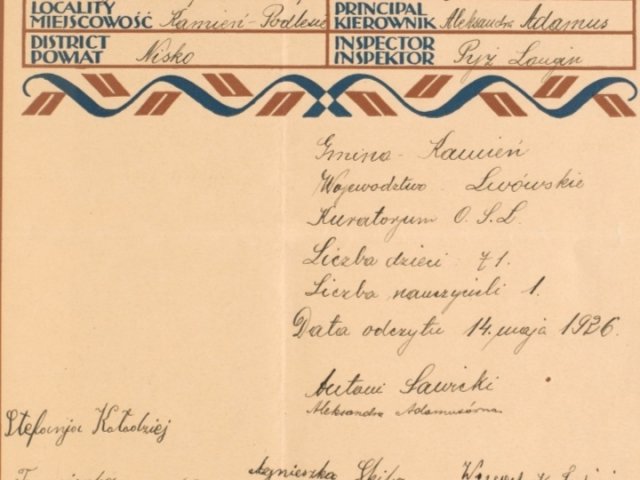 LOCALITY PRINCIPAL
MIEJSCOWOŚĆ Kamień-Podlesie KIEROWNIK Aleksandra Adamus
DISTRICT INSPECTOR
POWIAT Nisko INSPEKTOR Pyż Longin
Gmina - Kamień
Województwo Lwówskie
Kuratorjum O.S.L.
Liczba dzieci 71.
Liczba nauczycieli 1.
Data odczytu 14. maja 1926.
Antoni Sawicki
Aleksandra Adamusówna
Stefanja Kołodziej
Agnieszka Skiba